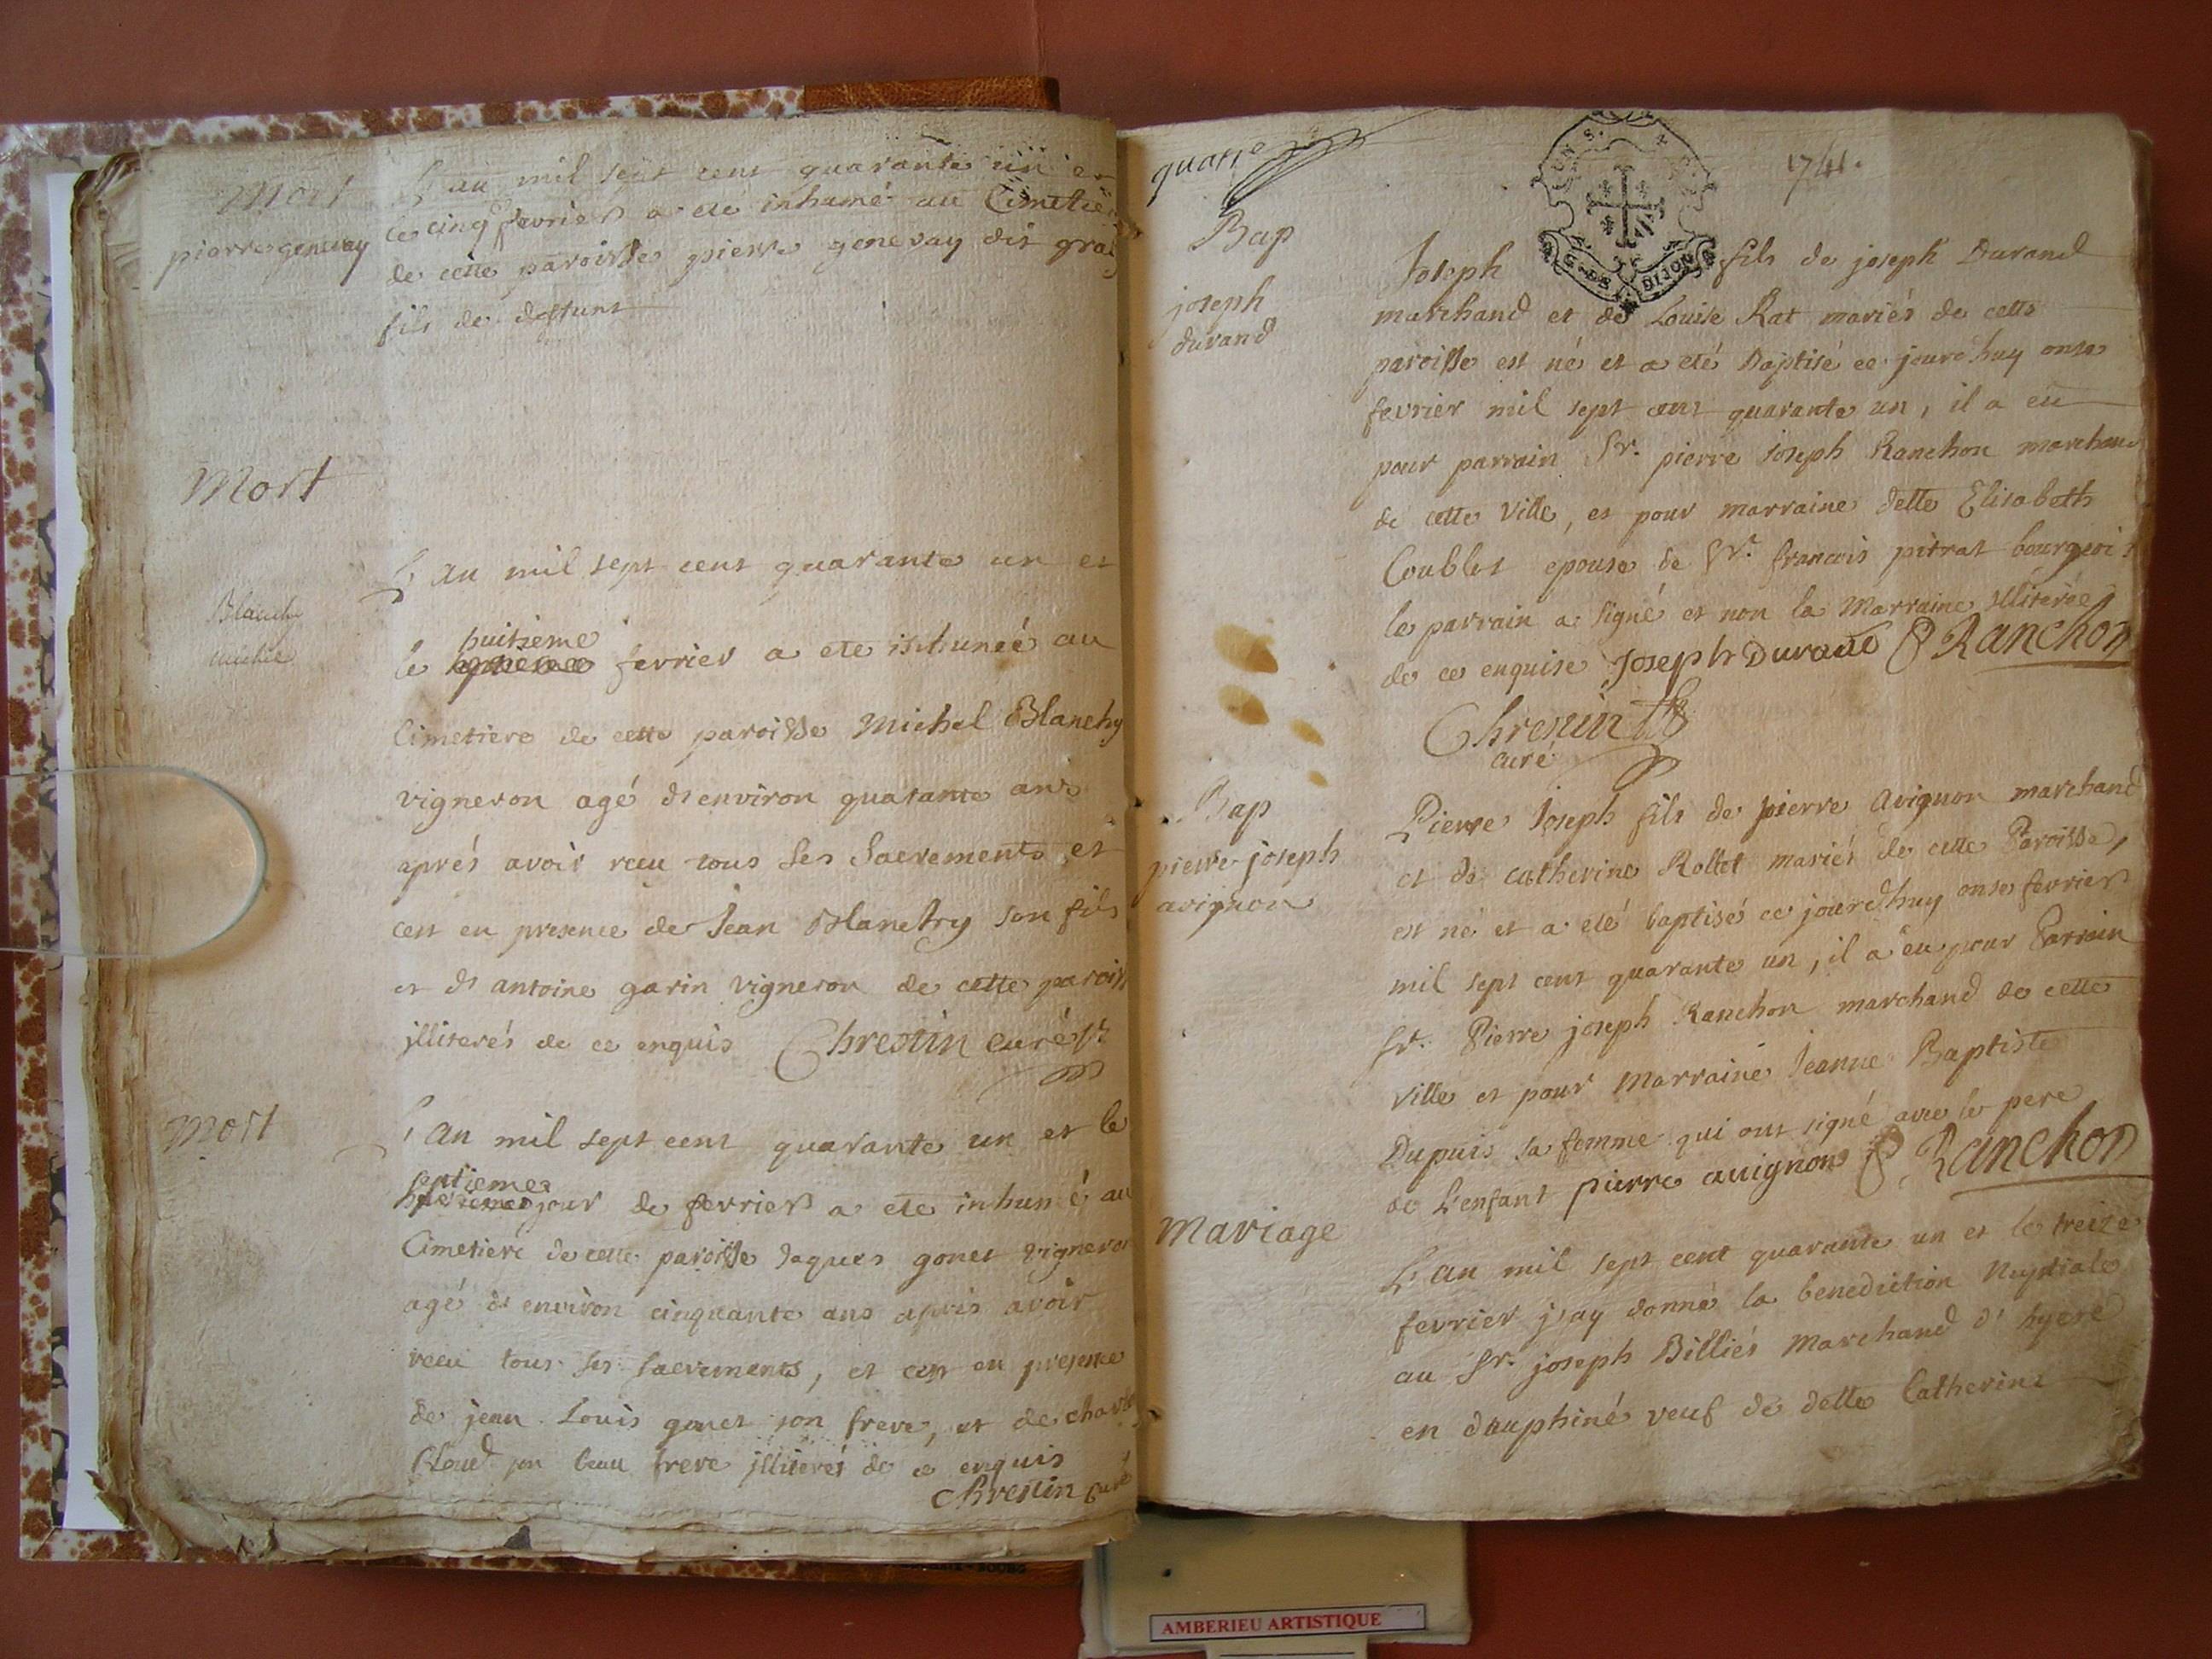 Mort
pierre genevay
L'an mil sept cent quarante un et
le cinq fevrier a eté inhumé au Cimetie
de cette paroisse pierre genevay dit gra
fils de deffunt
Mort
L'an mil sept cent quarante un et
Blanchy
michel
huitieme
le fevrier a ete ishuneé au
Cimetiere de cette paroisse Michel Blanchy
vigneron agé d'environ quarante ans
aprés avoir receu tous ses Sacrements, et
cest en presence de Jean Blanchy son fils
et d'antoine garin vigneron de cette parois
illiterés de ce enquis Chrestin curé
Mort
L'an mil sept cent quarante un et le
septieme
jour de fevrier a ete inhumé au
Cimetiere de cette paroisse Jaques gonet vigneron
agé d'environ cinquante ans aprés avoir
receu tous ses sacrements, et cest en presence
de jean Louis gonet son frere, et de charle
son beau frere illiterés de ce enquis
Chrestin curé
quatre
1741.
G. DE DIJON
Bap
joseph
durand
Joseph fils de joseph Durand
marchand et de Louise Rat mariés de cette
paroisse est né et a eté Baptisé ce jourdhuy onse
fevrier mil sept cent quarante un, il a eu
pour parrain Sr. pierre Joseph Ranchon marchand
de cette Ville, et pour marraine delle Elisabeth
Coublet epouse de Sr. francois pitrat bourgeois
le parrain a signé et non la Marraine illiterée
de ce enquise Joseph Durand P Ranchon
Chrestin
curé
Bap
pierre joseph
avignon
Pierre Joseph fils de pierre Avignon marchand
et de catherine Rollet mariés de cette Paroisse,
est né et a eté baptisé ce jourdhuy onse fevrier
mil sept cent quarante un, il a eu pour Parrain
Sr. Pierre joseph Ranchon marchand de cette
ville et pour Marraine Jeanne Baptiste
Dupuis sa femme qui ont signé avec le pere
de L'enfant pierre auignon P Ranchon
Mariage
L'an mil sept cent quarante un et le treize
fevrier j'ay donné la benediction Nuptiale
au Sr. joseph Billiés Marchand d'hyere
en dauphiné veuf de delle Catherine
AMBERIEU ARTISTIQUE